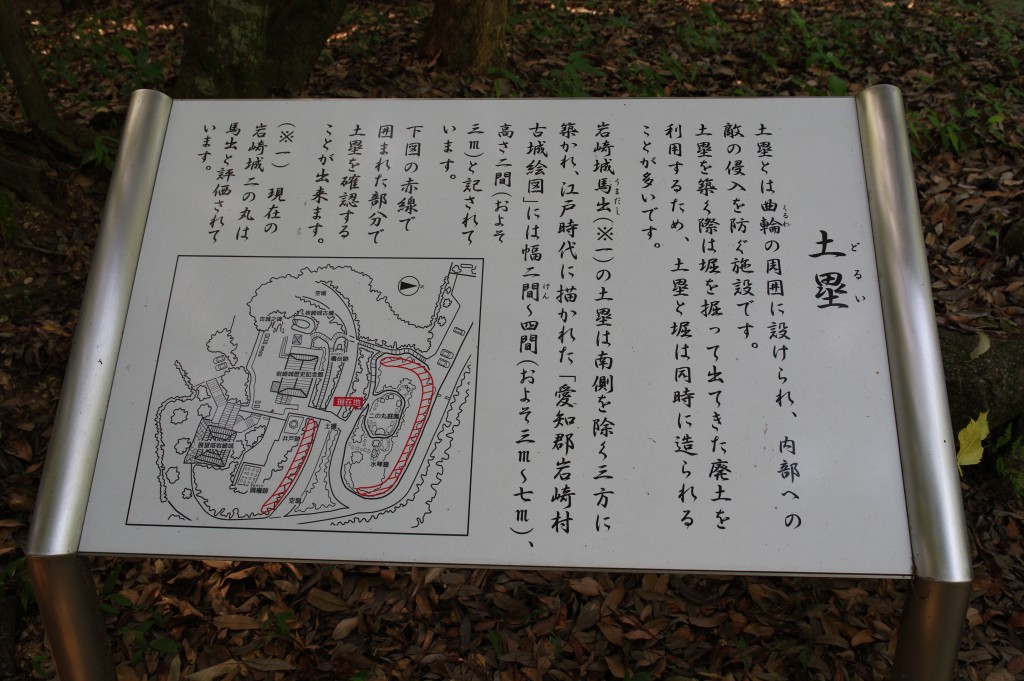 どるい
土塁
土塁とは曲輪の周囲に設けられ、内部への
くるわ
敵の侵入を防ぐ施設です。
土塁を築く際は堀を掘って出てきた廃土を
利用するため、土塁と堀は同時に造られる
ことが多いです。
岩崎城馬出(※一)の土塁は南側を除く三方に
うまだし
築かれ、江戸時代に描かれた「愛知郡岩崎村
古城絵図」には幅二間~四間(およそ三m~七m)、
けん
高さ二間(およそ
三m)と記されて
います。
下図の赤線で
囲まれた部分で
土塁を確認する
ことが出来ます。
(※一) 現在の
岩崎城二の丸は
馬出と評価されて
います。
空堀
古城之碑
岩崎城古墳
櫓台跡
岩崎城歴史記念館
現在地
二の丸庭園
土橋
井戸跡
展望塔岩崎城
水琴窟
隅櫓跡
空堀